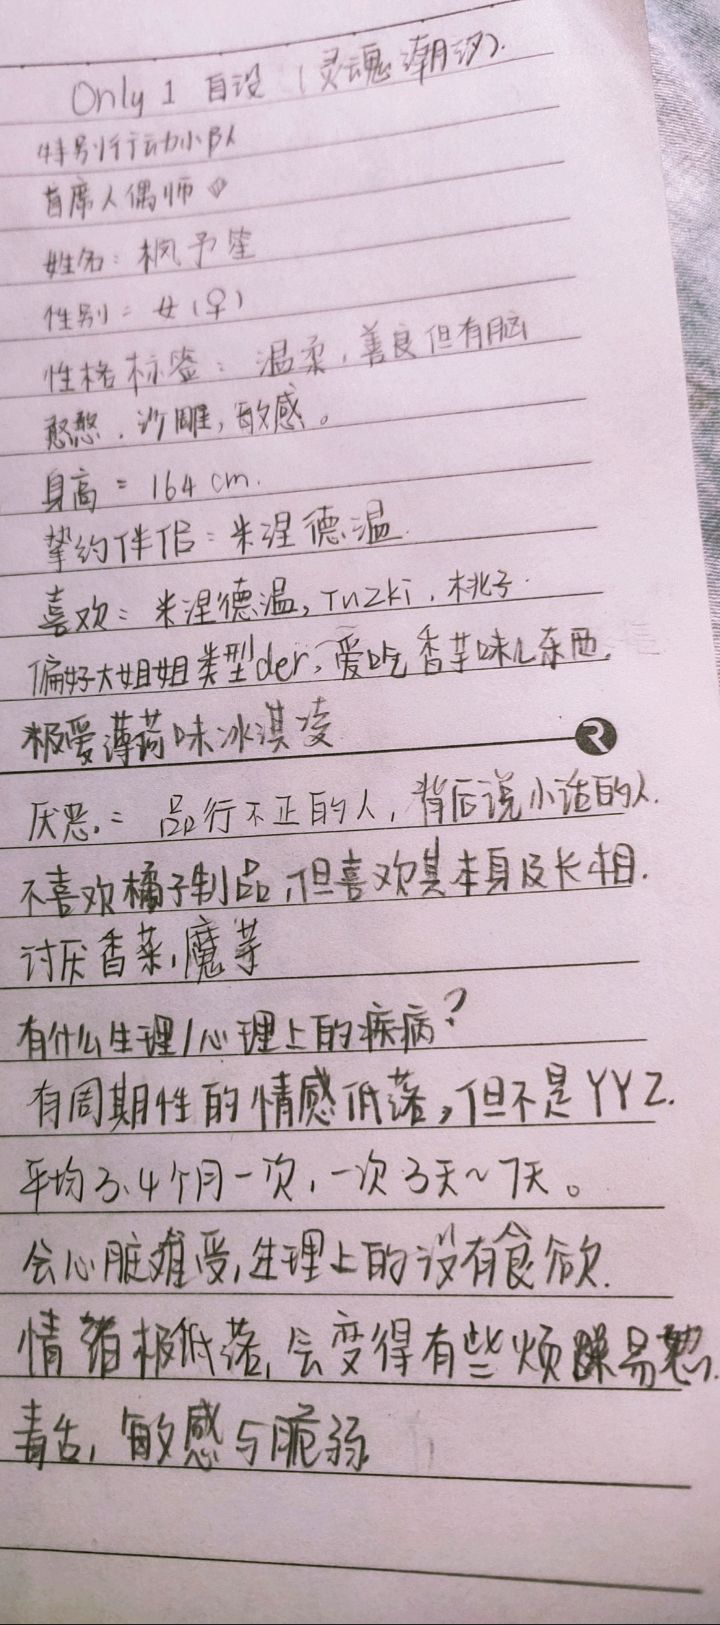 Only 1 自设（灵魂潮汐）.
特别行动小队
首席人偶师
姓名：枫予笙
性别：女（♀）
性格标签：温柔，善良但有脑
憨憨，沙雕，敏感。
身高：164 cm.
挚约伴侣：米涅德温.
喜欢：米涅德温，Tuzki，桃子.
偏好大姐姐类型der，爱吃香芋味儿东西，
极爱薄荷味冰淇凌
R
厌恶：品行不正的人，背后说小话的人.
不喜欢橘子制品，但喜欢其本身及长相.
讨厌香菜，魔芋
有什么生理/心理上的疾病？
有周期性的情感低落，但不是YYZ.
平均3、4个月一次，一次3天~7天。
会心脏难受，生理上的没有食欲.
情绪极低落，会变得有些烦躁易怒.
毒舌，敏感与脆弱